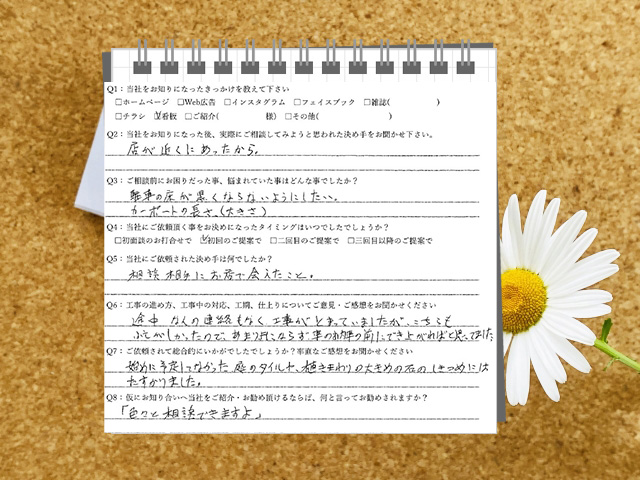 Q1：当社をお知りになったきっかけを教えて下さい
□ホームページ □Web広告 □インスタグラム □フェイスブック □雑誌( )
□チラシ ☑看板 □ご紹介( 様) □その他( )
Q2：当社をお知りになった後、実際にご相談してみようと思われた決め手をお聞かせ下さい。
店が近くにあったから。
Q3：ご相談前にお困りだった事、悩まれていた事はどんな事でしたか？
の床が悪くならないようにしたい。
カーポートの長さ（大きさ）
Q4：当社にご依頼頂く事をお決めになったタイミングはいつでしたでしょうか？
□初面談のお打合せで ☑初回のご提案で □二回目のご提案で □三回目以降のご提案で
Q5：当社にご依頼された決め手は何でしたか？
相談相手にお店で会えたこと。
Q6：工事の進め方、工事中の対応、工期、仕上りについてご意見・ご感想をお聞かせください
途中なんの連絡もなく工事がとまっていましたが、こちらも
がしかったので、あまり気にならず車の納車の前にできよがればと思ってました
Q7：ご依頼されて総合的にいかがでしたでしょうか？率直なご感想をお聞かせください
始めに予定してなかった庭のタイルや、植きまわりの大きめの石のしきつめには
たすかりました。
Q8：仮にお知り合いへ当社をご紹介・お勧め頂けるならば、何と言ってお勧めされますか？
「色々と相談できますよ」